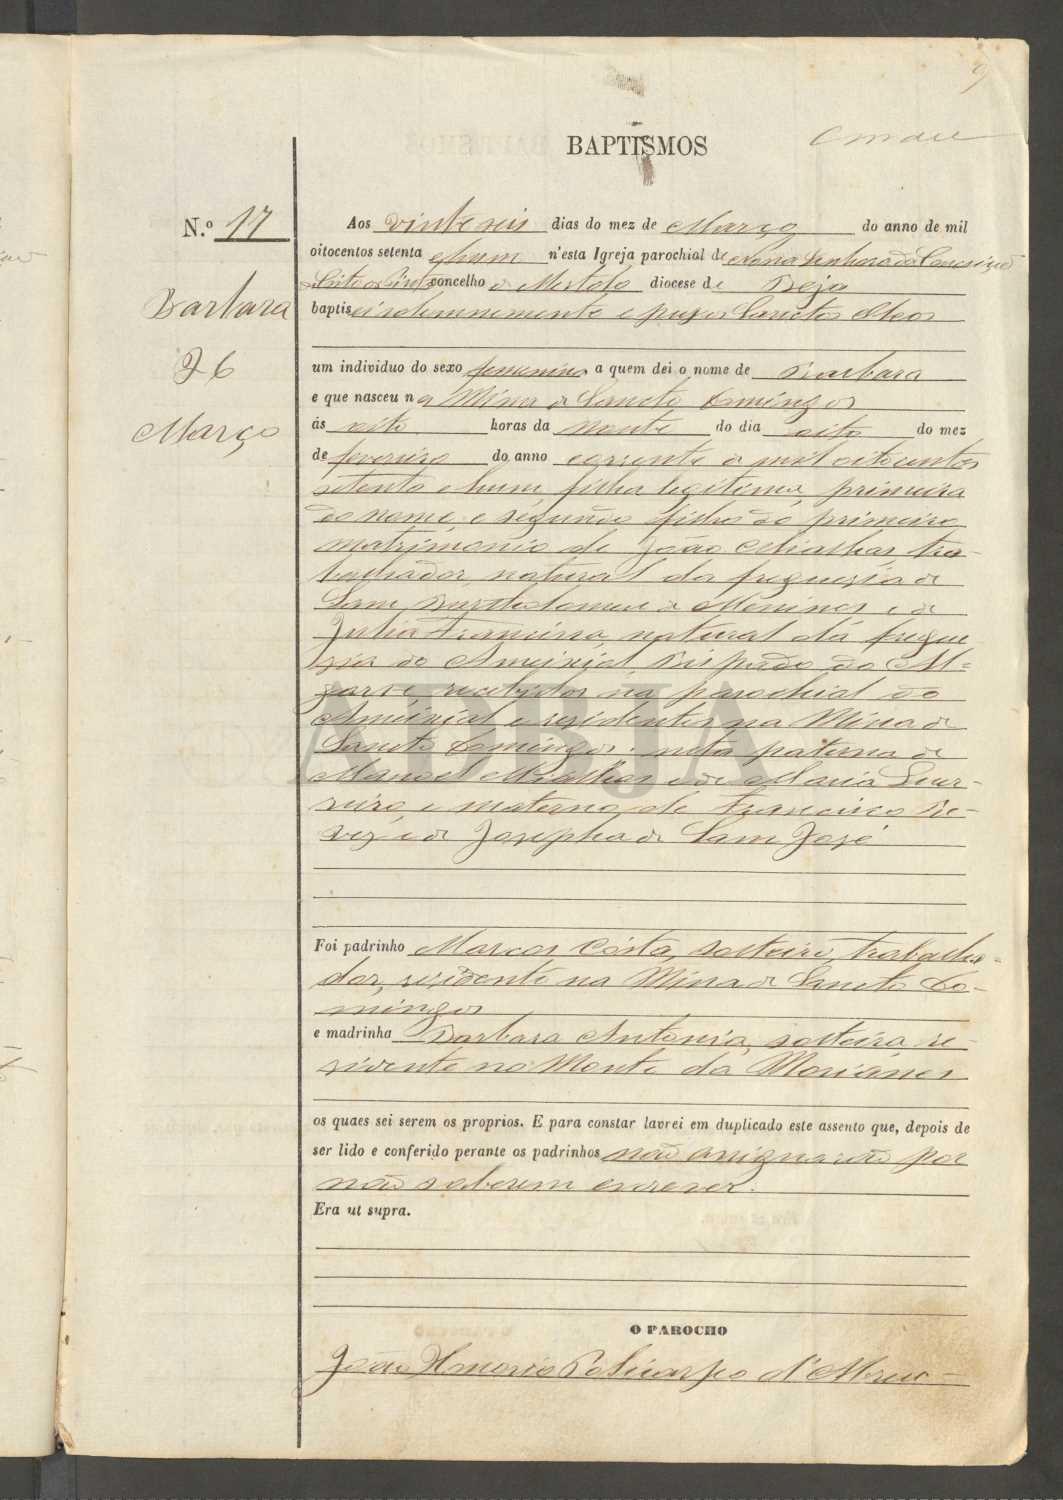 9
BAPTISMOS
N.º 17
Barbara
26
Março
Aos vinte seis dias do mez de Março do anno de mil
oitocentos setenta ehum n'esta Igreja parochial de Nossa Senhora da Conceição
concelho de Mertola diocese de Beja
baptisei solemnemente e puz os Sanctos Oleos
um individuo do sexo femenino a quem dei o nome de Barbara
e que nasceu na Mina de Sancto Domingos
ás oito horas da noute do dia oito do mez
de fevereiro do anno corrente de mil oitocentos
setenta e hum, filha legitima, primeira
do nome, e segundo filho do primeiro
matrimonio de João Mialhas, tra-
balhador, natural da freguezia de
Sam Bartholomeu de Messines e de
Julia Francisca, natural da fregue
zia do Ameixial Bispado do Al=
garve recebidos na parochial do
Ameixial e rezidentes na Mina de
Sancto Domingos: neta paterna de
Manoel Mialhas e de Maria Lour-
reiro, e materna de Francisco Re-
vez e de Josepha de Sam José
ADBJA
Foi padrinho Marcos Costa, solteiro, trabalha-
dor, rezidente na Mina de Sancto Do-
mingos
e madrinha Barbara Antonia, solteira re-
zidente no Monte da Morianes
os quaes sei serem os proprios. E para constar lavrei em duplicado este assento que, depois de
ser lido e conferido perante os padrinhos não assignarão por
não saberem escrever.
Era ut supra.
O PAROCHO
João Policarpo d'Abreu